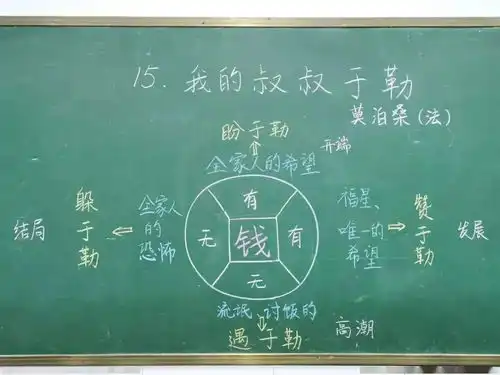 15. 我的叔叔于勒
莫泊桑(法)
盼于勒
开端
⇧
全家人的希望
有
结局
躲于勒
⇐
全家人的恐怖
无
钱
有
福星、唯一的希望
⇒
赞于勒
发展
无
流氓 讨饭的
⇩
遇于勒
高潮